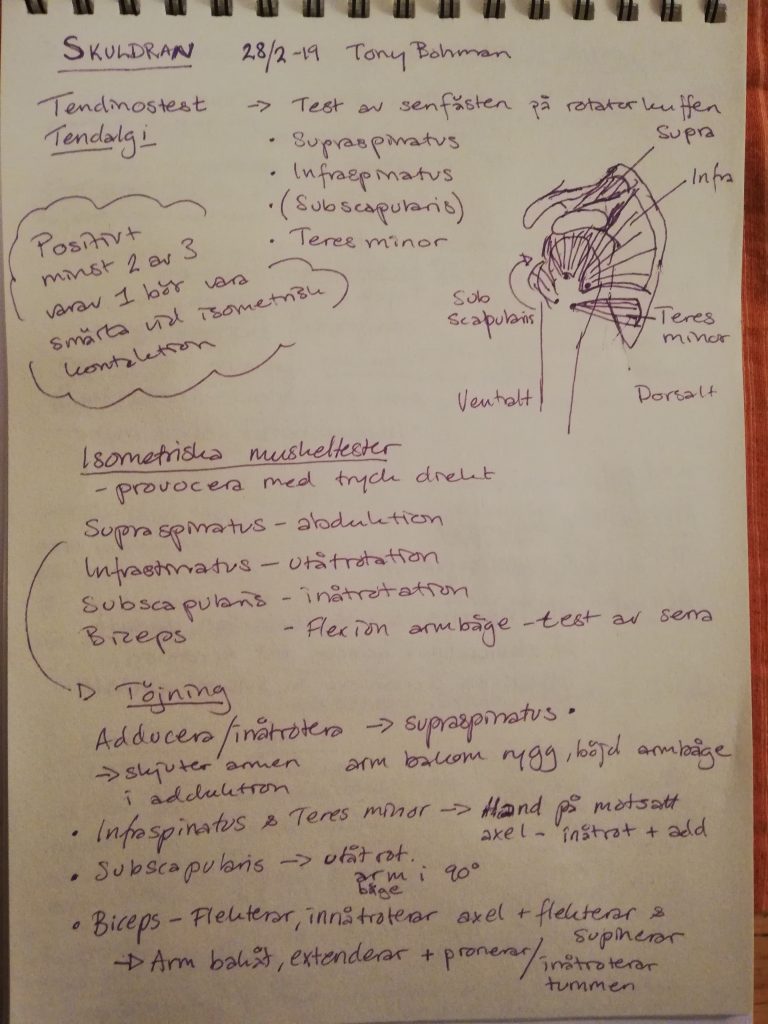 SKULDRAN 28/2-19 Tony Bohman
Tendinostest → Test av senfästen på rotatorkuffen
Tendalgi
• Supraspinatus
• Infraspinatus
• (Subscapularis)
• Teres minor
Supra
Infra
Sub
scapularis
Teres
minor
Ventalt
Dorsalt
Positivt
minst 2 av 3
varav 1 bör vara
smärta vid isometrisk
kontaktion
Isometriska muskeltester
- provocera med tryck direkt
Supraspinatus - abduktion
Infrastinatus - utåtrotation
Subscapularis - inåtrotation
Bizeps - Flexion armbåge - test av sena
→ Töjning
Adducera/inåtrotera → supraspinatus •
→ skjuter armen arm bakom rygg, böjd armbåge
i adduktion
• Infraspinatus & Teres minor → Hand på motsatt
axel - inåtrot + add
• Subscapularis → utåtrot.
arm i 90°
båge
• Biceps - Flekterar, innåtroterar axel + flekterar &
supinerar
→ Arm bakåt, extenderar + pronerar/
inåtroterar
tummen